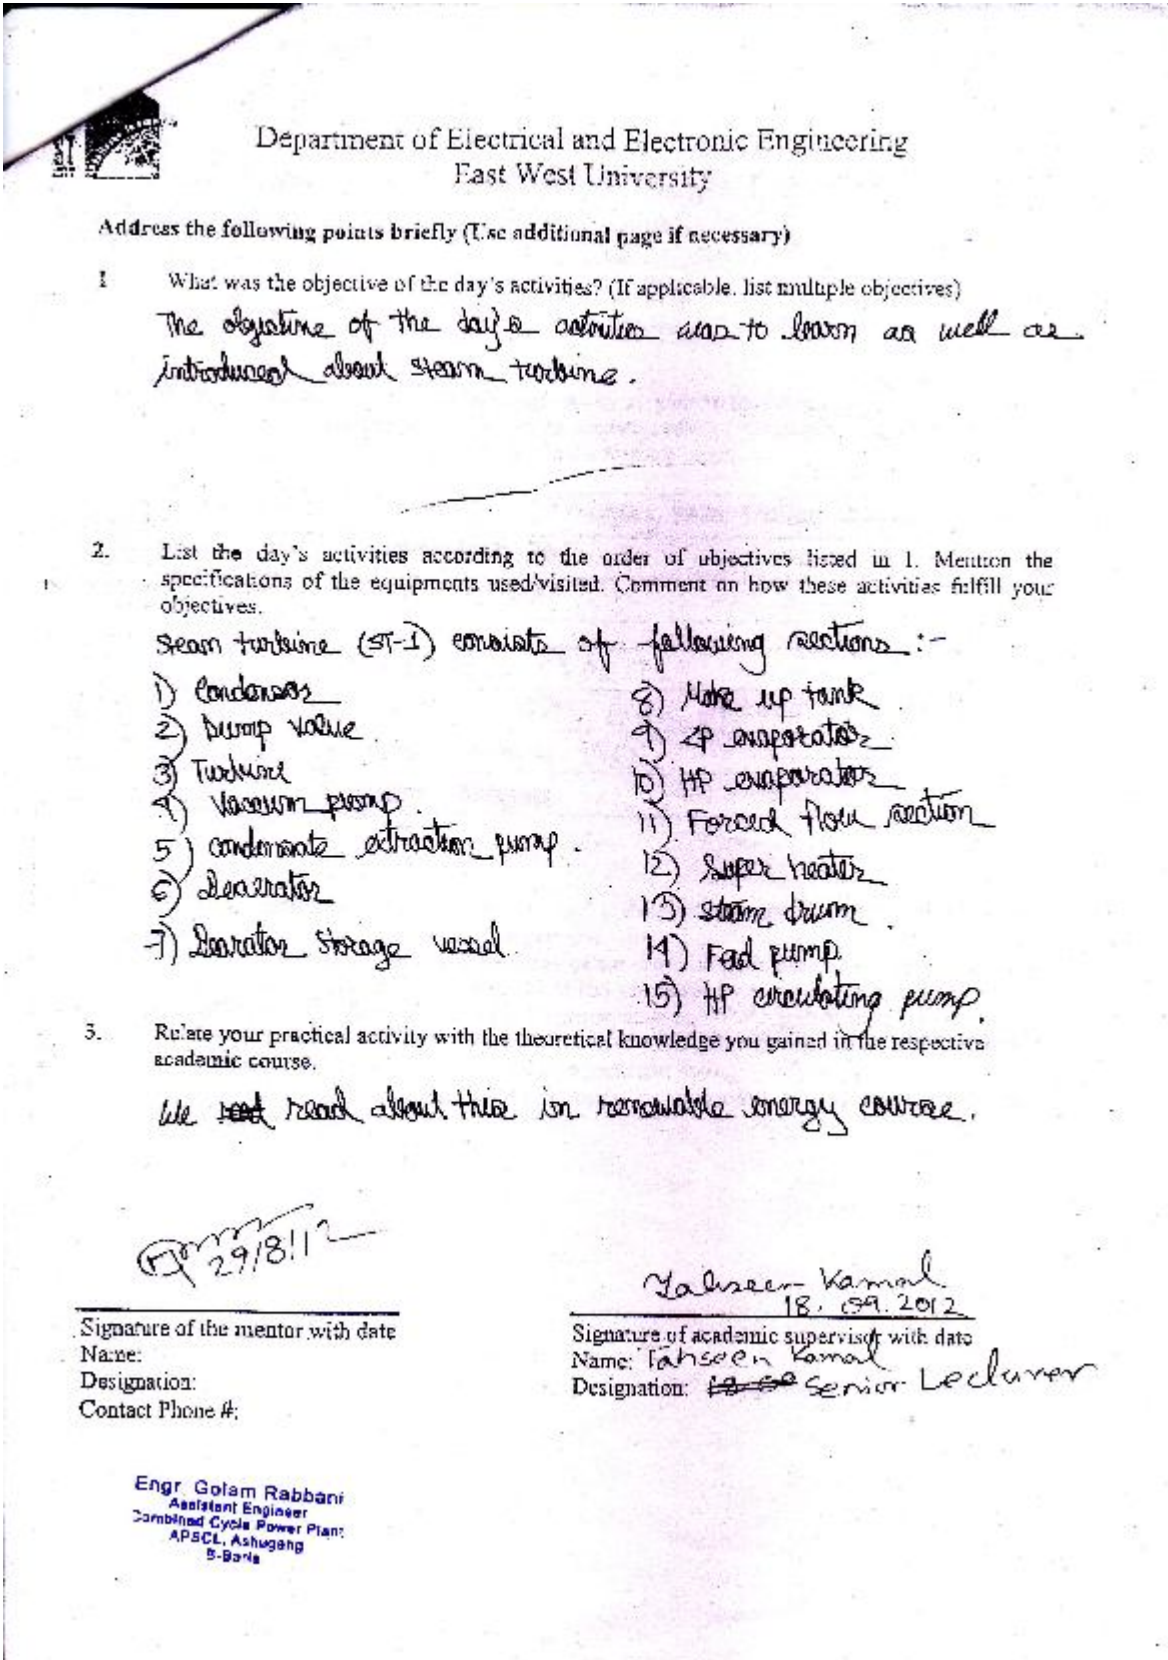 Department of Electrical and Electronic Engineering
East West University
Address the following points briefly (Use additional page if necessary)
1 What was the objective of the day's activities? (If applicable, list multiple objectives)
The objective of the day's activities was to learn as well as
introduced about steam turbine.
2. List the day's activities according to the order of objectives listed in 1. Mention the
specifications of the equipments used/visited. Comment on how these activities fulfill your
objectives.
Steam turbine (ST-1) consists of following sections :-
1) Condensor
2) Dump valve
3) Turbine
4) Vaccum pump.
5) condensate extraction pump.
6) Deaerator
7) Dearator storage vessel.
8) Make up tank
9) LP evaporator
10) HP evaporator
11) Forced flow section
12) Super heater
13) steam drum.
14) Feed pump
15) HP circulating pump.
3. Relate your practical activity with the theoretical knowledge you gained in the respective
academic course.
We read about this in renewable energy course.
29/8/12
Tahseen Kamal
18.09.2012
Signature of the mentor with date
Name:
Designation:
Contact Phone #:
Signature of academic supervisor with date
Name: Tahseen Kamal
Designation: Senior Lecturer
Engr. Golam Rabbani
Assistant Engineer
Combined Cycle Power Plant
APSCL, Ashugang
B-Baria